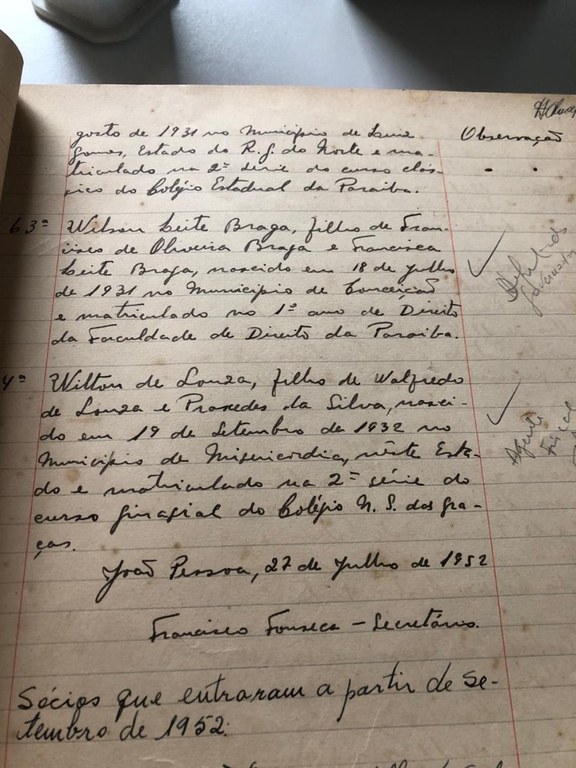 Observação
gosto de 1931 no Município de Luis
Gomes, Estado do R. G. do Norte e ma-
triculado na 2ª série do curso clás-
sico do Colégio Estadual da Paraiba.
63º Wilson Leite Braga, filho de Fran-
cisco de Oliveira Braga e Francisca
Leite Braga, nascido em 18 de Julho
de 1931 no Município de Conceição
e matriculado no 1º ano de Direito
da Faculdade de Direito da Paraiba.
4º Wilton de Souza, filho de Walfredo
de Souza e Praxedes da Silva, nasci-
do em 19 de Setembro de 1932 no
Município de Misericordia, nêste Esta-
do e matriculado na 2ª série do
curso ginasial do Colégio N. S. das Gra-
ças.
João Pessoa, 27 de Julho de 1952
Francisco Fonseca - Secretário.
Sócios que entraram a partir de Se-
tembro de 1952: